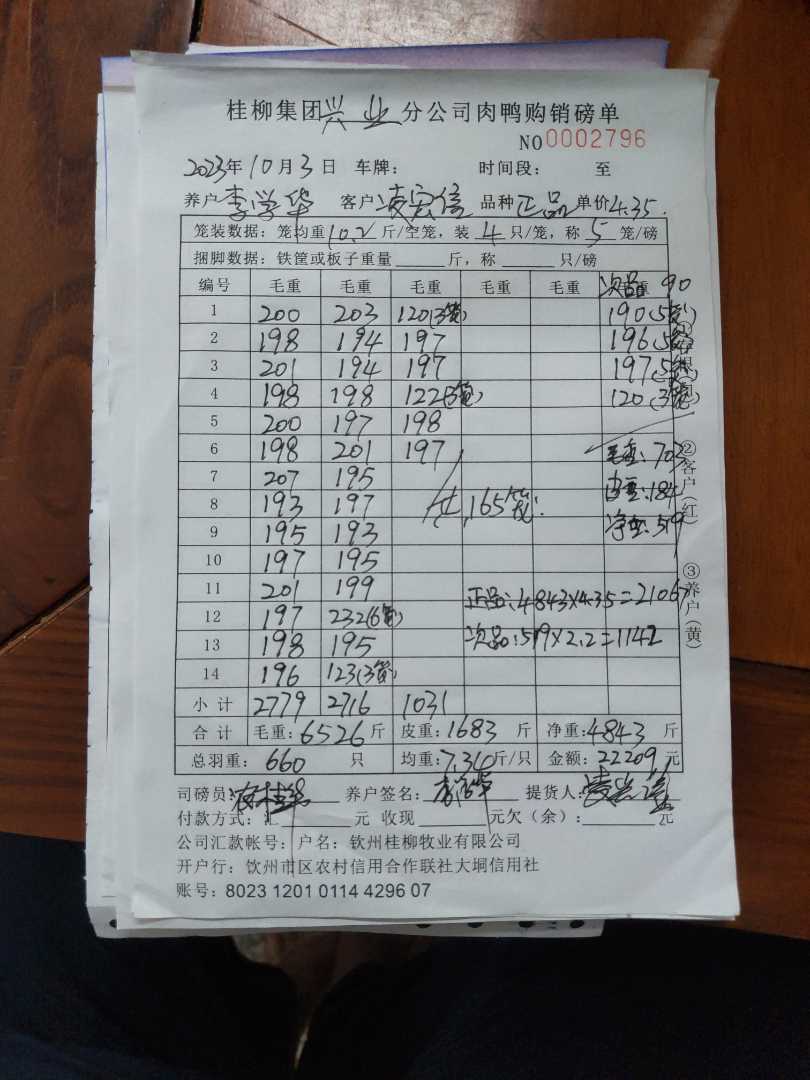 桂柳集团兴业分公司肉鸭购销磅单
NO0002796
2023年10月3日 车牌: 时间段: 至
养户李学华 客户凌宏信 品种正品 单价4.35.
笼装数据: 笼均重10.2斤/空笼, 装4只/笼, 称5笼/磅
捆脚数据: 铁筐或板子重量 斤, 称 只/磅
编号 毛重 毛重 毛重 毛重 毛重 次品 90
1 200 203 120(3笼) 190(5笼)
2 198 194 197 196(5笼)
3 201 194 197 197(5笼)
4 198 198 122(3笼) 120(3笼)
5 200 197 198
6 198 201 197 毛重:703
7 207 195 皮重:184
8 193 197 共165笼. 净重:519
9 195 193
10 197 195
11 201 199 正品:4843×4.35=21067
12 197 232(6笼)
13 198 195 次品:519×2.2=1142
14 196 123(3笼)
小计 2779 2716 1031
合计 毛重:6526斤 皮重:1683斤 净重:4843斤
总羽重: 660 只 均重:7.34斤/只 金额:22209元
司磅员: 养户签名: 提货人:
付款方式: 汇 元 收现 元欠(余): 元
公司汇款帐号: 户名: 钦州桂柳牧业有限公司
开户行: 饮州市区农村信用合作联社大垌信用社
账号: 8023 1201 0114 4296 07
②客户(红)
③养户(黄)